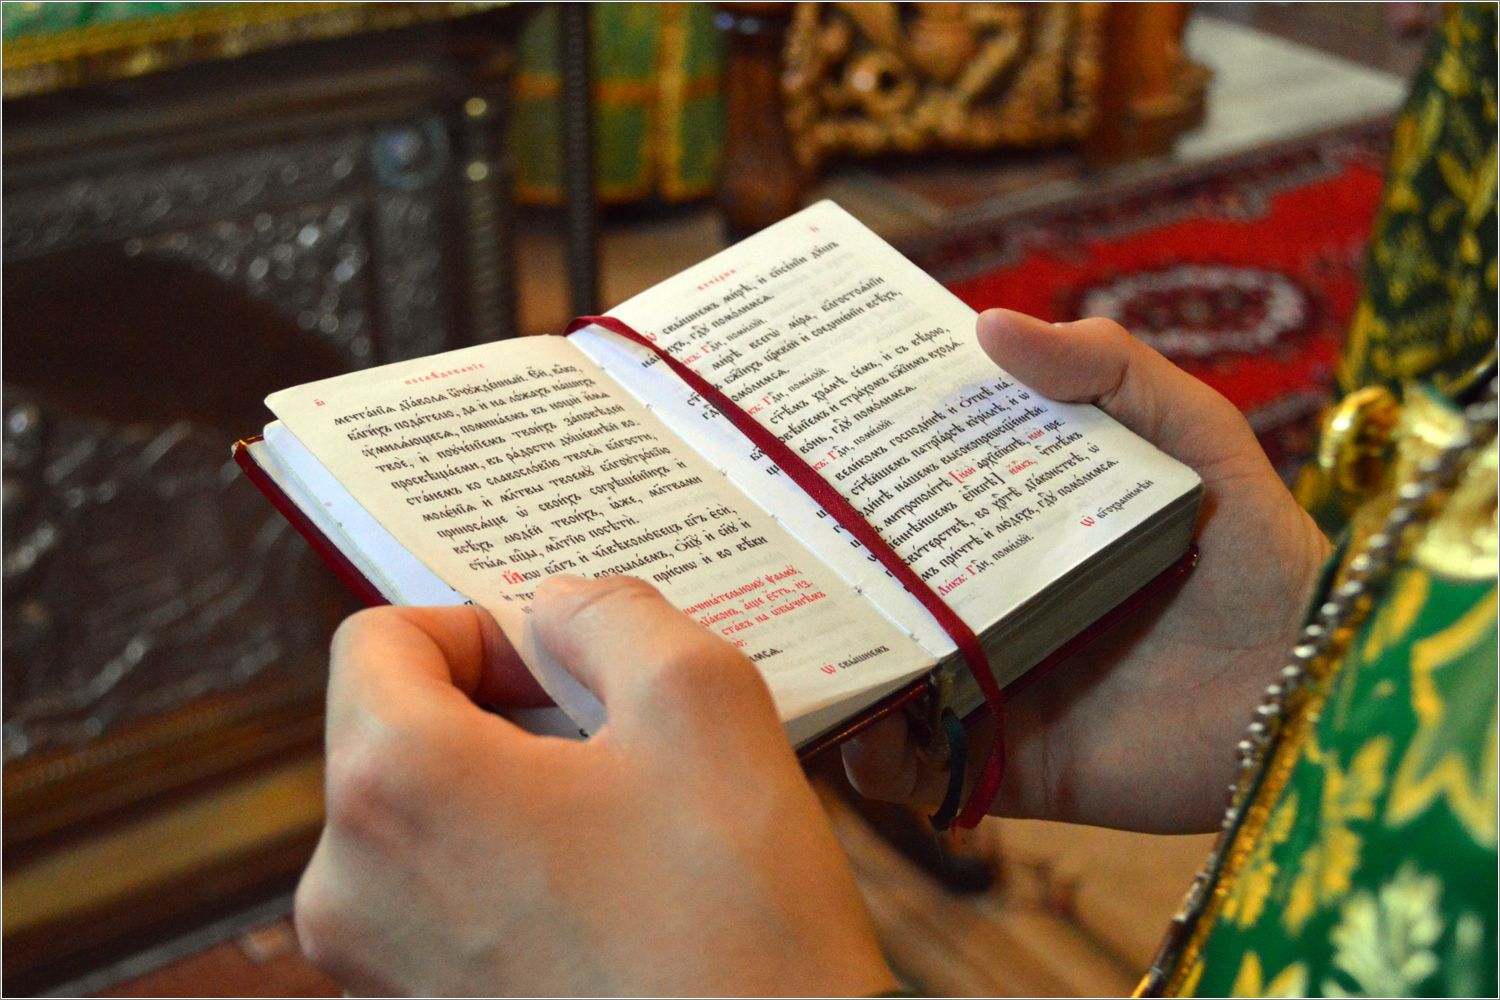 н҃
послѣдованїе
мечта́нїа дїа́вола ѿчꙋжде́нный. Е҆́й, вл҃ко,
бл҃ги́хъ пода́телю, да и҆ на ло́жахъ на́шихъ
ᲂу҆милѧ́ющесѧ, помина́емъ въ нощѝ и҆́мѧ
твоѐ, и҆ поꙋче́нїемъ твои́хъ за́повѣдей
просвѣща́еми, въ ра́дости дꙋше́внѣй во-
ста́немъ ко славосло́вїю твоеѧ̀ бл҃гости,
моле́нїѧ и҆ мл҃твы твоемꙋ̀ бл҃гоꙋтро́бїю
приносѧ́ще ѡ҆ свои́хъ согрѣше́нїихъ и҆
всѣ́хъ люде́й твои́хъ, ꙗ҆̀же, мл҃твами
ст҃ы́ѧ бцⷣы, млⷭ҇тїю посѣтѝ.
Ꙗ҆́кѡ бл҃гъ и҆ чл҃вѣколю́бецъ бг҃ъ є҆сѝ,
и҆ возсыла́емъ, ѻ҆ц҃ꙋ̀ и҆ сн҃ꙋ и҆
при́снѡ и҆ во вѣ́ки
начина́тельномꙋ ѱалмꙋ̀,
дїа́конъ, а҆́ще є҆́сть, и҆з-
ста́въ на ѡ҆бы́чнѣмъ
Ѡ҆ свы́шнемъ
вече́рни
Ѡ҆ свы́шнемъ ми́рѣ, и҆ спⷭ҇е́нїи дꙋ́шъ
на́шихъ, гдⷭ҇ꙋ помо́лимсѧ.
Ли́къ: Гдⷭ҇и, поми́лꙋй.
ми́рѣ всегѡ̀ мі́ра, бл҃гостоѧ́нїи
ст҃ы́хъ бж҃їихъ цр҃кве́й и҆ соедине́нїи всѣ́хъ,
гдⷭ҇ꙋ помо́лимсѧ.
Ли́къ: Гдⷭ҇и, поми́лꙋй.
ст҃ѣ́мъ хра́мѣ се́мъ, и҆ съ вѣ́рою,
бл҃гоговѣ́нїемъ и҆ стра́хомъ бж҃їимъ вхо́дѧ-
во́нь, гдⷭ҇ꙋ помо́лимсѧ.
Ли́къ: Гдⷭ҇и, поми́лꙋй.
вели́комъ господи́нѣ и҆ ѻ҆тцѣ̀ на-
ст҃ѣ́йшемъ патрїа́рсѣ кѷрі́ллѣ, и҆ ѡ҆
господи́нѣ на́шемъ высокопреѡсщ҃е́ннѣй-
митрополі́тѣ [и҆лѝ а҆рхїепⷭ҇кпѣ, и҆лѝ пре-
ѡсщ҃е́ннѣйшемъ є҆пⷭ҇кпѣ] и҆́м҃къ, честнѣ́мъ
пресвѵ́терствѣ, во хрⷭ҇тѣ̀ дїа́конствѣ, ѡ҆
всѣ́мъ при́чтѣ и҆ лю́дехъ, гдⷭ҇ꙋ помо́лимсѧ.
Ли́къ: Гдⷭ҇и, поми́лꙋй.
Ѡ҆ бг҃охрани́мѣй